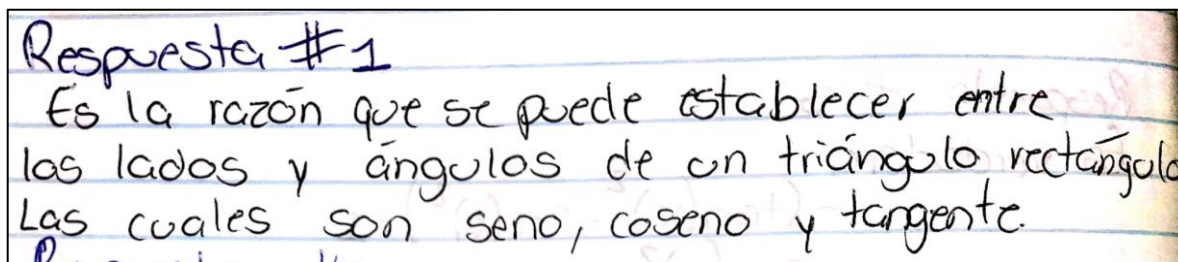 Respuesta #1
Es la razón que se puede establecer entre
los lados y ángulos de un triángulo rectángulo
Las cuales son seno, coseno y tangente.